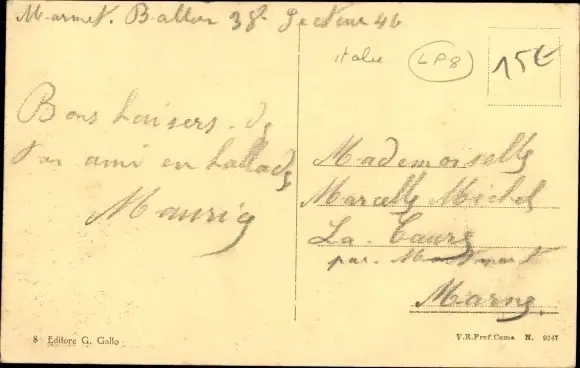 Marmet. Ballon 38e Secteur 46
italie
LP8
15€
Bons baisers. de
ton ami en ballade
Maurice
Mademoiselle
Marcelle Michel
La
par.
Marne.
8 Editore G. Gallo
V.R.Pref.Como N. 9247